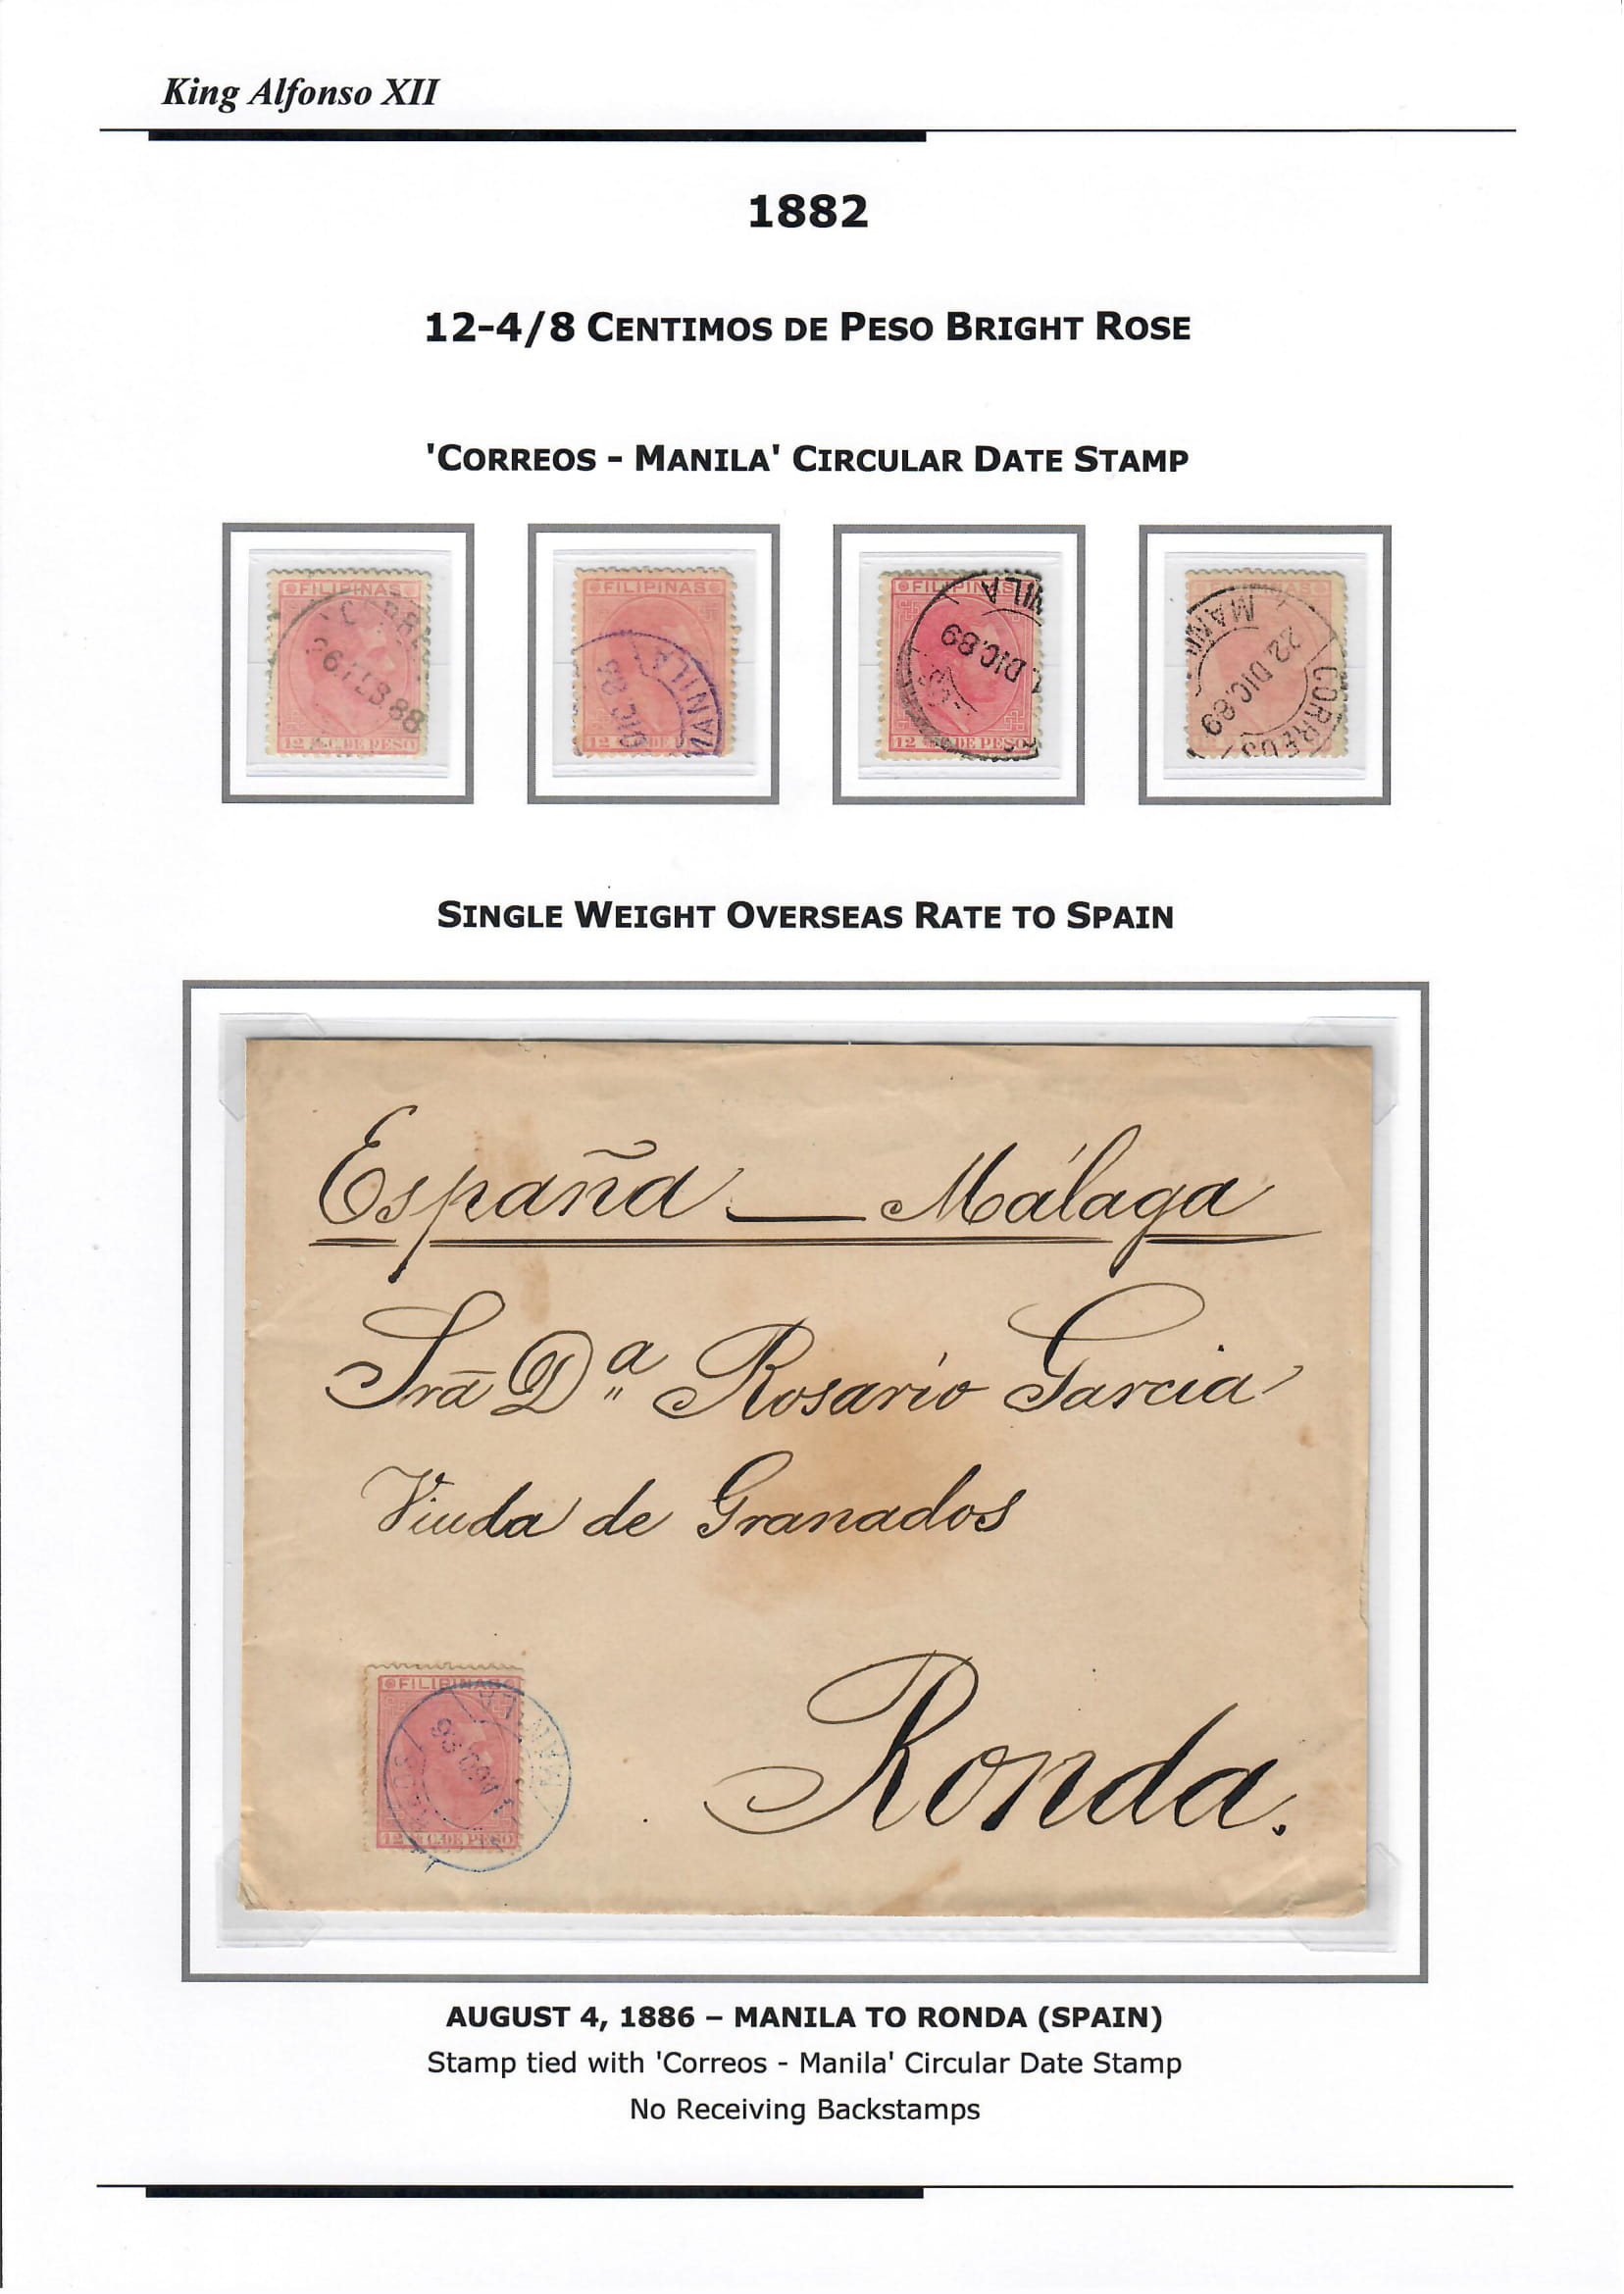 King Alfonso XII
1882
12-4/8 CENTIMOS DE PESO BRIGHT ROSE
'CORREOS - MANILA' CIRCULAR DATE STAMP
FILIPINAS
CORRE
26 FEB 88
12 C. DE PESO
FILIPINAS
MANILA
DIC 88
12
FILIPINAS
NILA
DIC. 89
12 C. DE PESO
FILIPINAS
MANIL
22 DIC. 89
CORREOS
SINGLE WEIGHT OVERSEAS RATE TO SPAIN
España — Málaga
Sra Dª Rosario Garcia
Viuda de Granados
Ronda.
FILIPINAS
MANILA
12 C. DE PESO
AUGUST 4, 1886 – MANILA TO RONDA (SPAIN)
Stamp tied with 'Correos - Manila' Circular Date Stamp
No Receiving Backstamps